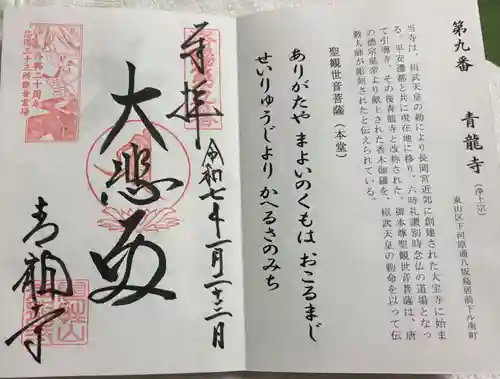 第九番 青龍寺（浄土宗）
東山区下河原通八坂鳥居前下ル南町
当寺は、桓武天皇の勅により長岡宮近郊に創建された大宝寺に始ま
る。平安遷都と共に現在地に移り、六時礼讃別時念仏の道場となっ
て引導寺、その後青龍寺と改称された。御本尊聖観世音菩薩は、唐
の徳宗皇帝より献上された香木伽羅を、桓武天皇の勅命を以って伝
教大師が彫刻されたと伝えられている。
聖観世音菩薩（本堂）
ありがたや まよいのくもは おこるまじ
せいりゅうじより かへるさのみち
奉拝
令和七年一月二十三日
大悲殿
青龍寺
再興二十周年
洛陽三十三所観音霊場